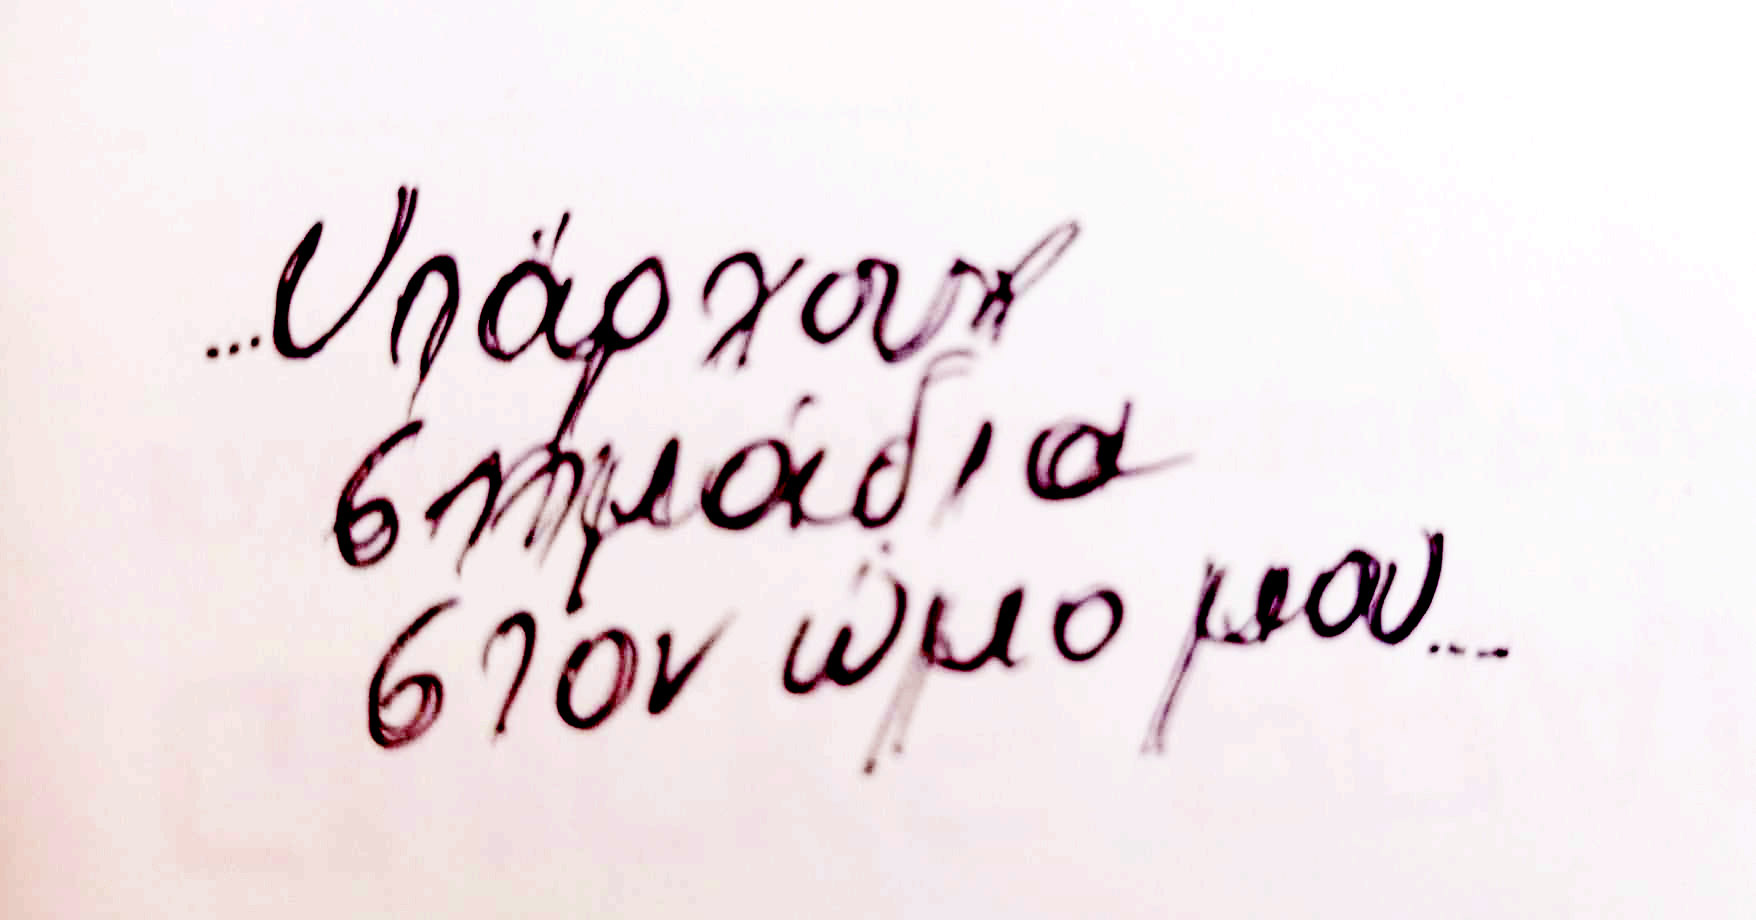 ...Υπάρχουν
σημάδια
στον ώμο μου...